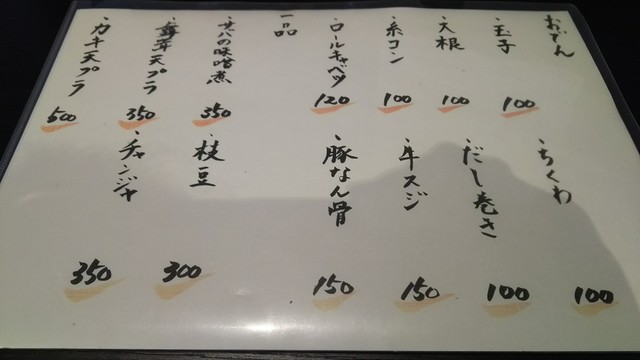 おでん
・玉子 100
・大根 100
・糸コン 100
・ロールキャベツ 120
・ちくわ 100
・だし巻き 100
・牛スジ 150
・豚なん骨 150
一品
・サバの味噌煮 350
天プラ 350
・カキ天プラ 500
・枝豆 300
・チャンジャ 350